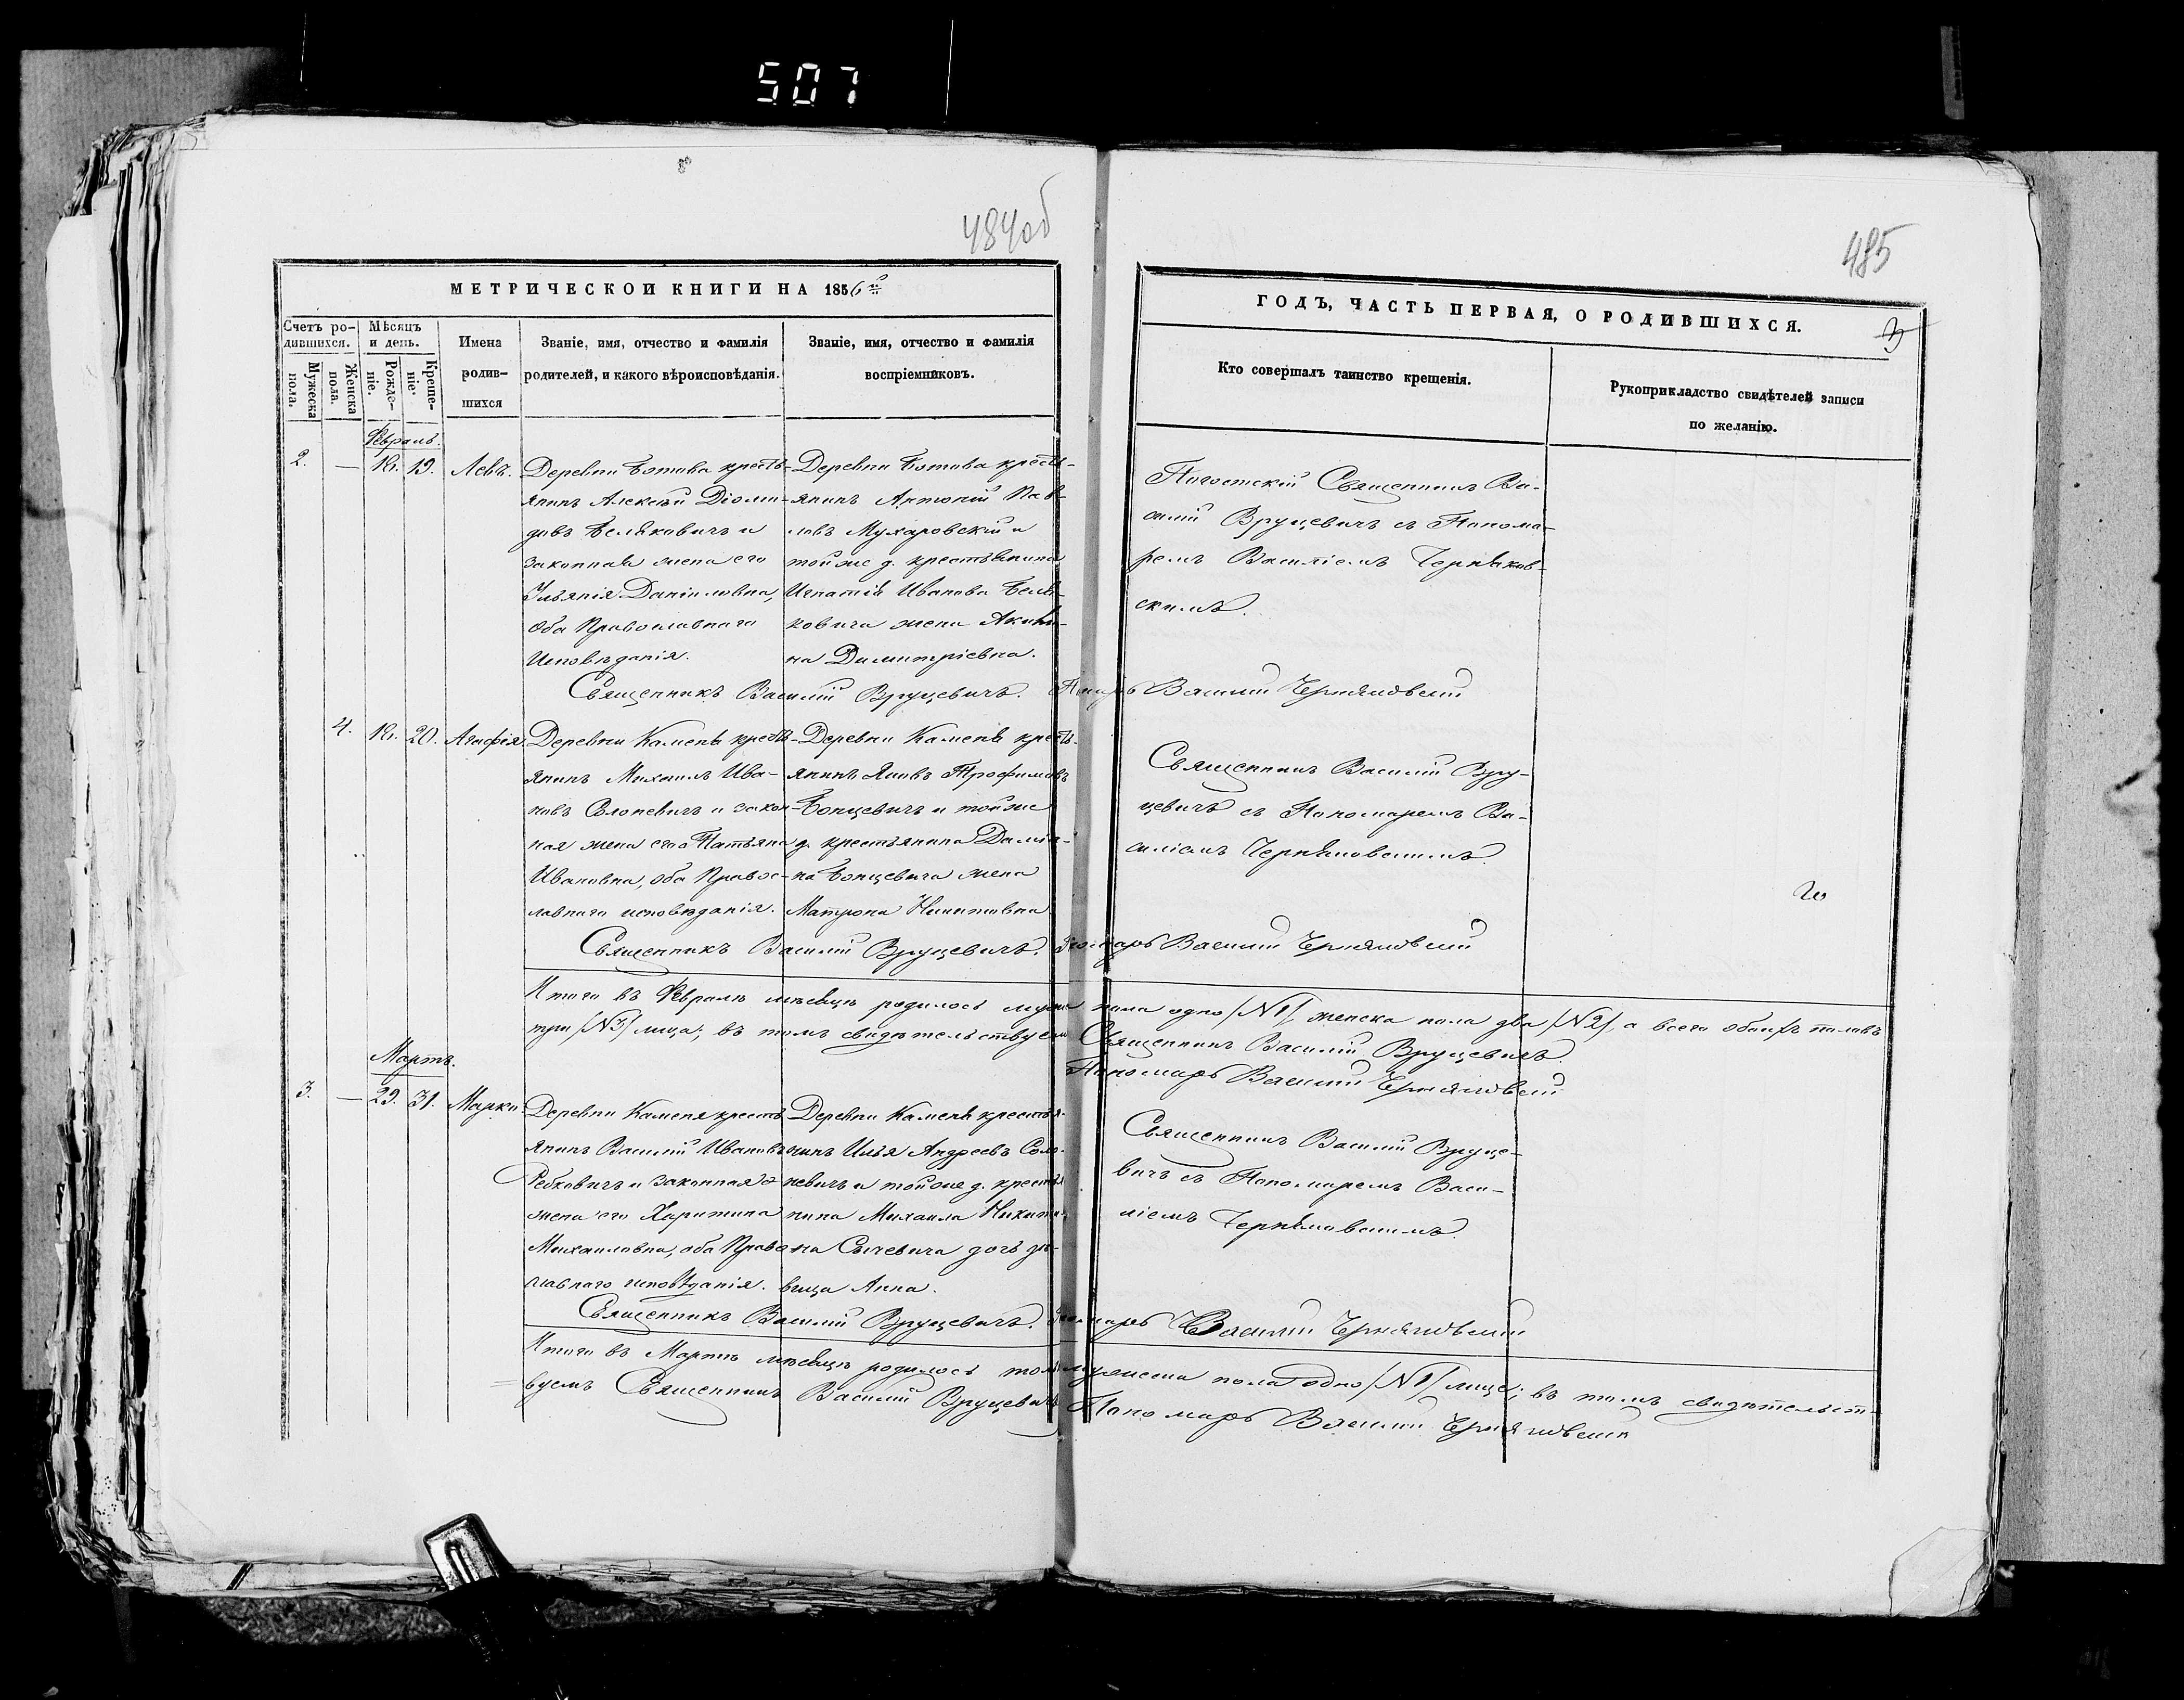 507
484об
485
МЕТРИЧЕСКОЙ КНИГИ НА 1856й
ГОДЪ, ЧАСТЬ ПЕРВАЯ, О РОДИВШИХСЯ.
Счетъ ро-
дившихся.
Мѣсяцъ
и день.
Мужеска
пола.
Женска
пола.
Рожде-
ніе.
Креще-
ніе.
Имена
родив-
шихся
Званіе, имя, отчество и фамилія
родителей, и какого вѣроисповѣданія.
Званіе, имя, отчество и фамилія
воспріемниковъ.
Кто совершалъ таинство крещенія.
Рукоприкладство свидѣтелей записи
по желанію.
Февраль.
2. — 18. 19. Левъ.
Деревни Ботова крестъ-
янинъ Алексѣй Діоми-
довъ Велѣковичъ и
законная жена его
Ульянія Даніиловна,
оба Православнаго
Исповѣданія.
Деревни Ботова кресть-
янинъ Антоній Пав-
ловъ Мухаровскій и
тойже д. крестьянина
Игнатія Иванова Велѣ-
ковича жена Акили-
на Димитріевна.
Священникъ Ва-
силій Вруцевичъ съ Понома-
ремъ Василіемъ Черняков-
скимъ.
Священникъ Василій Вруцевичъ.
Василій Черняковскій
4. 18. 20. Агафія.
Деревни Каменя кресть-
янинъ Михаилъ Ива-
новъ Солоневичъ и закон-
ная жена его Татьяна
Ивановна, оба Правос-
лавнаго исповѣданія.
Деревни Каменя кресть-
янинъ Яковъ Трофимовъ
Бонцевичъ и тойже
д. крестьянина Даміа-
на Бонцевича жена
Матрона Никитовна
Священникъ Василій Вру-
цевичъ съ Пономаремъ Ва-
силіемъ Черняковскимъ.
Священникъ Василій Вруцевичъ.
Пономарь Василій Черняковскій
Итого въ Февралѣ мѣсяцѣ родилось мужеска пола одно /№1/, женска пола два /№2/, а всего обоихъ половъ
три /№3/ лица; въ томъ свидѣтельствуемъ Священникъ Василій Вруцевичъ.
Пономарь Василій Черняковскій
Мартъ.
3. — 29. 31. Марко.
Деревни Каменя кресть
янинъ Василій Ивановъ
Ребковичъ и законная
жена его Харитина
Михаиловна, оба Право
славнаго исповѣданія.
Деревни Каменя крестья-
нинъ Илья Андреевъ Соло-
невичъ и тойже д. крестья
нина Михаила Никити-
на Сычевича дочь дѣ-
вица Анна.
Священникъ Василій Вруце-
вичъ съ Пономаремъ Васи-
ліемъ Черняковскимъ.
Священникъ Василій Вруцевичъ.
Пономарь Василій Черняковскій
Итого въ Мартѣ мѣсяцѣ родилось мужеска пола одно /№1/ лице; въ томъ свидѣтельст-
вуемъ Священникъ Василій Вруцевичъ Пономарь Василій Черняковскій